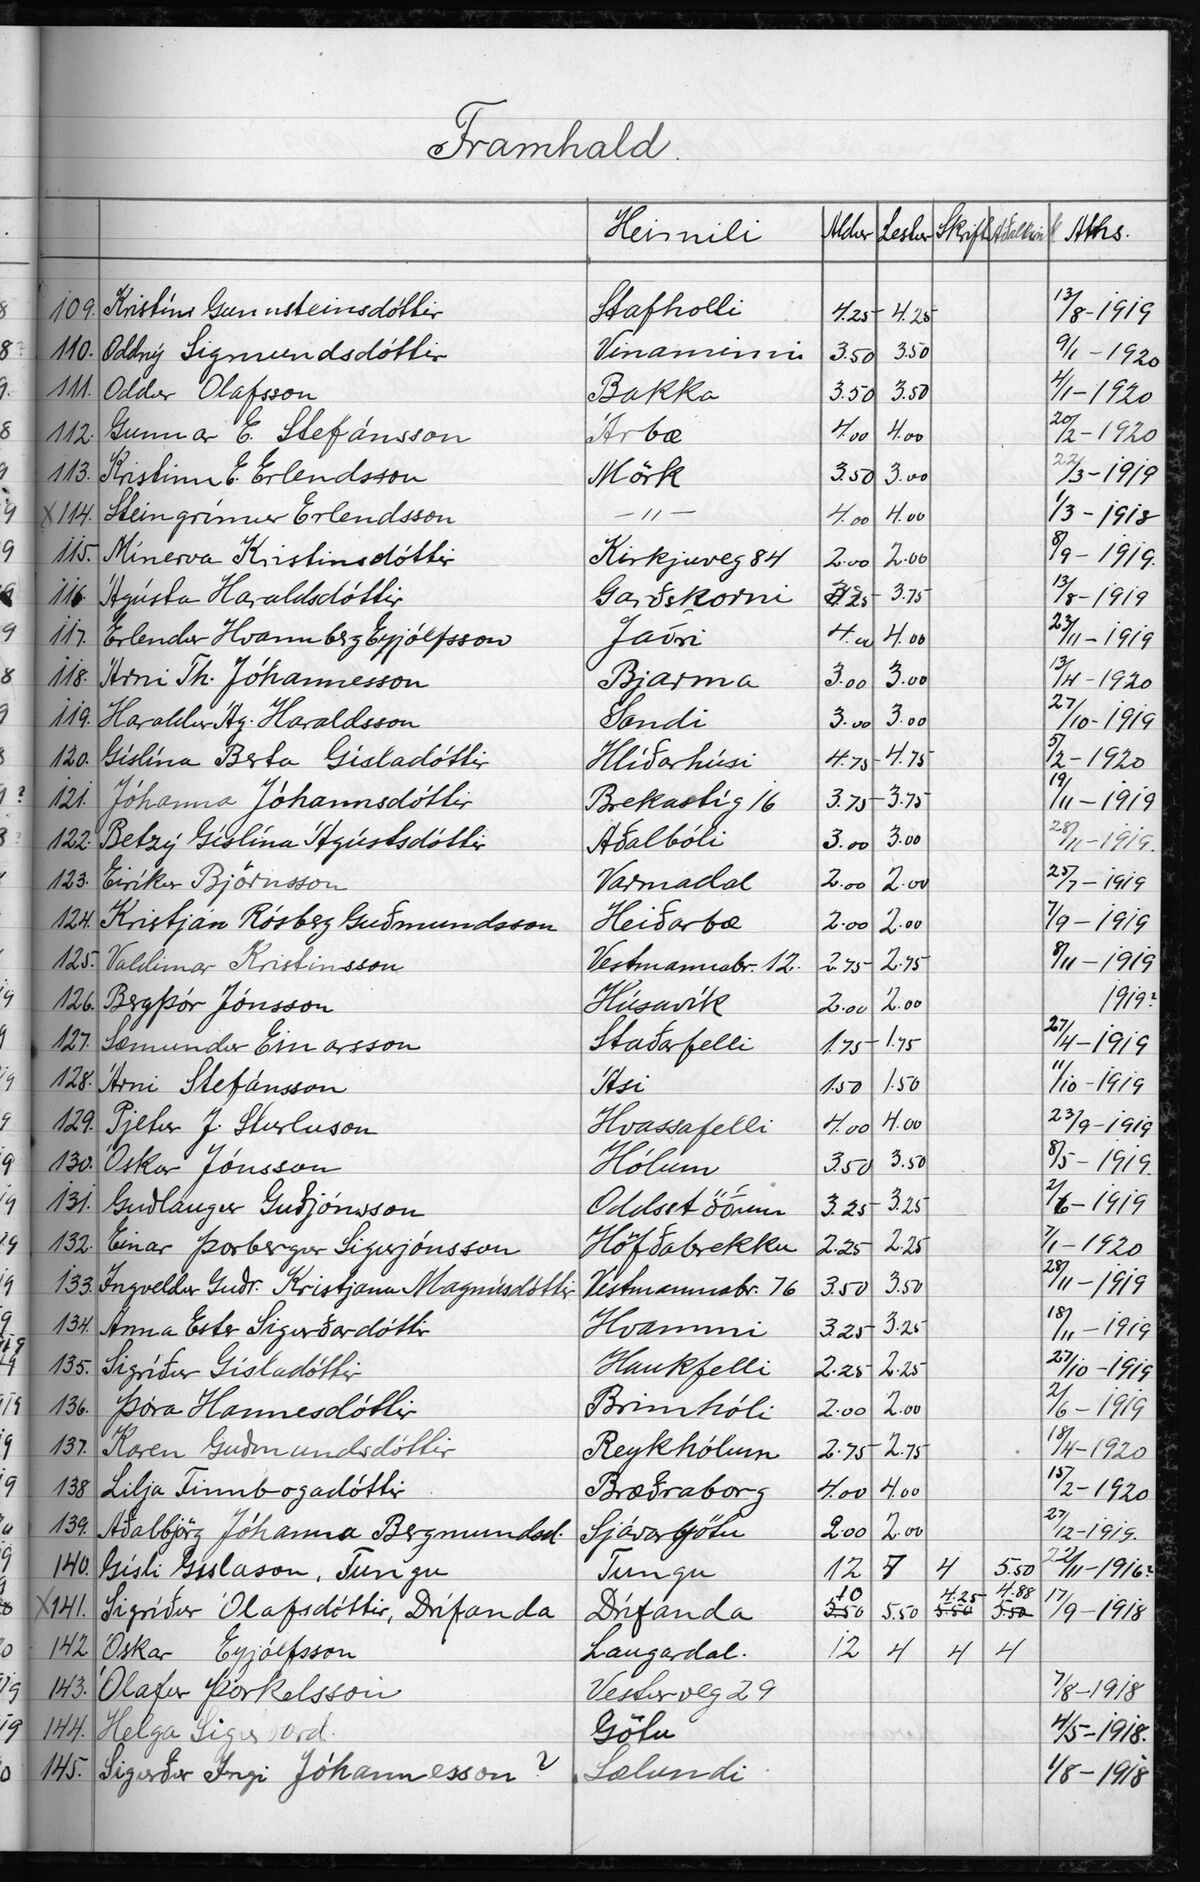 Framhald.
Heimili Aldur Lestur Skrift Aðaleink Aths.
109. Kristíns Gunnsteinsdóttir Stafholti 4.25 4.25 13/8-1919
110. Oddný Sigmundsdóttir Vinaminni 3.50 3.50 9/1-1920
111. Oddur Olafsson Bakka 3.50 3.50 4/1-1920
112. Gunnar E. Stefánsson Árbæ 4.00 4.00 20/2-1920
113. Kristinn E. Erlendsson Mörk 3.50 3.00 22/3-1919
X 114. Steingrímur Erlendsson -"- 4.00 4.00 1/3-1918
115. Mínerva Kristinsdóttir Kirkjuveg 84 2.00 2.00 8/9-1919.
116 Ágústa Haraldsdóttir Garðshorni 3.75 13/8-1919
117. Erlendur Hvannberg Eyjólfsson Jaðri 4.00 4.00 23/11-1919
118. Árni Th. Jóhannesson Bjarma 3.00 3.00 13/4-1920
119. Haraldur Ág. Haraldsson Sandi 3.00 3.00 27/10-1919
120. Gíslína Berta Gísladóttir Hlíðarhúsi 4.75 4.75 5/2-1920
121. Jóhanna Jóhannsdóttir Brekastíg 16 3.75 3.75 19/11-1919
122. Betzý Gíslína Ágústsdóttir Aðalbóli 3.00 3.00 28/11-1919.
123. Eiríkur Björnsson Varmadal 2.00 2.00 25/7-1919
124. Kristján Rósberg Guðmundsson Heiðarbæ 2.00 2.00 7/9-1919
125. Valdimar Kristinsson Vestmannabr. 12. 2.75 2.75 8/11-1919
126. Bergþór Jónsson Húsavík 2.00 2.00 1919?
127. Sæmundur Einarsson Staðarfelli 1.75 1.75 27/4-1919
128. Árni Stefánsson Ási 1.50 1.50 11/10-1919
129. Pjetur J. Sturluson Hvassafelli 4.00 4.00 23/9-1919
130. Óskar Jónsson Hólum 3.50 3.50 8/5-1919.
131. Guðlaugur Guðjónsson Oddsstöðum 3.25 3.25 2/6-1919
132. Einar Þorbergur Sigurjónsson Höfðabrekku 2.25 2.25 7/1-1920
133. Ingveldur Guðr. Kristjana Magnúsdóttir Vestmannabr. 76 3.50 3.50 28/11-1919
134. Anna Ester Sigurðardóttir Hvammi 3.25 3.25 18/11-1919
135. Sigríður Gísladóttir Haukfelli 2.25 2.25 27/10-1919
136. Þóra Hannesdóttir Brimhóli 2.00 2.00 2/6-1919
137. Karen Guðmundsdóttir Reykhólum 2.75 2.75 18/4-1920
138 Lilja Finnbogadóttir Bræðraborg 4.00 4.00 15/2-1920
139. Aðalbjörg Jóhanna Bergmundsd. Sjávargötu 2.00 2.00 27/12-1919.
140. Gísli Gíslason, Tungu Tungu 12 7 4 5.50 22/11-1916?
X 141. Sigríður Olafsdóttir, Drífanda Drífanda 10 3.50 5.50 4.25 5.50 4.88 5.50 17/9-1918
142 Óskar Eyjólfsson Laugardal. 12 4 4 4
143. Ólafur Þorkelsson Vesturveg 29 7/8-1918
144. Helga Götu 4/5-1918.
145. Sigurður Ingi Jóhannesson ? Sælundi 1/8-1918